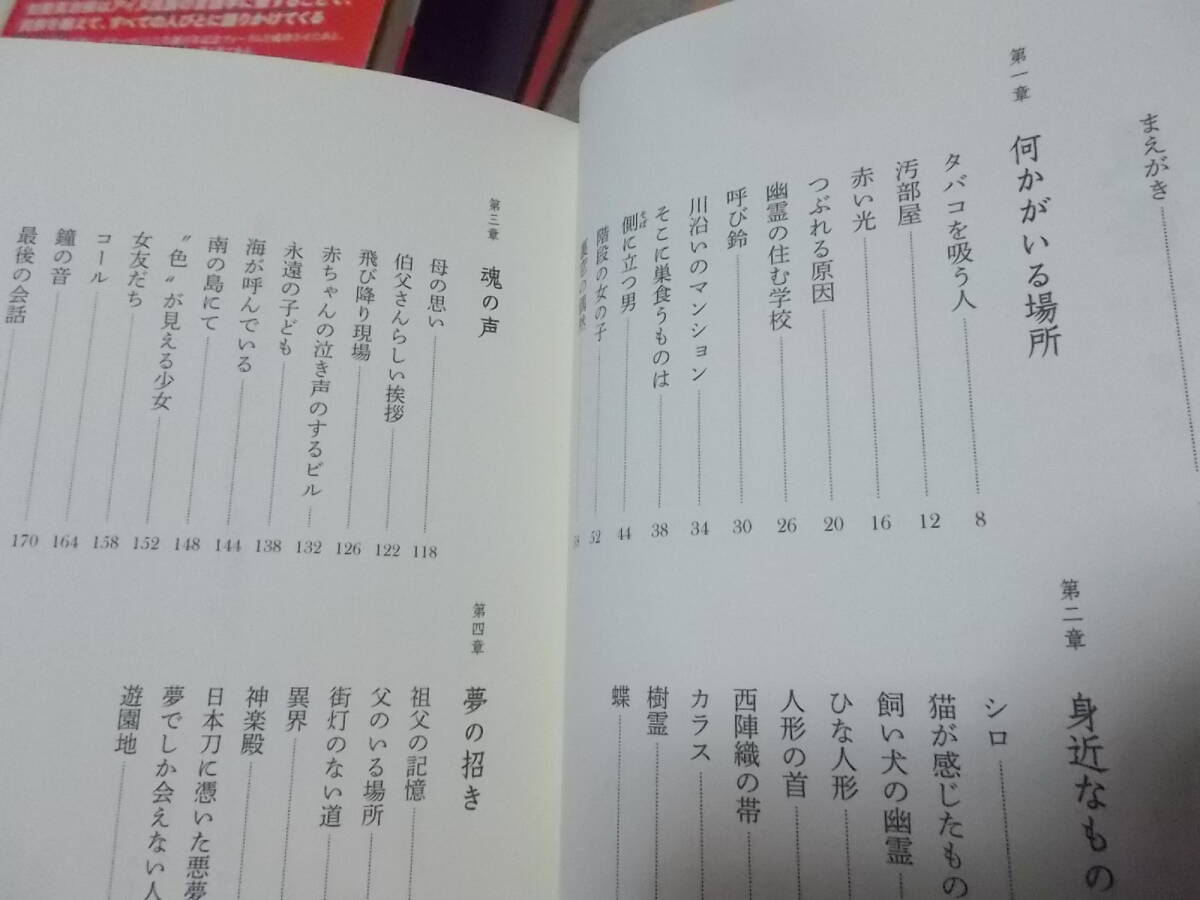 民族を超えて、すべての人びとに語りかけてくる
まえがき
第一章 何かがいる場所
タバコを吸う人 8
汚部屋 12
赤い光 16
つぶれる原因 20
幽霊の住む学校 26
呼び鈴 30
川沿いのマンション 34
そこに巣食うものは 38
側に立つ男 44
そば
階段の女の子 52
第二章 身近なもの
シロ
猫が感じたもの
飼い犬の幽霊
ひな人形
人形の首
西陣織の帯
カラス
樹霊
蝶
第三章 魂の声
母の思い 118
伯父さんらしい挨拶 122
飛び降り現場 126
赤ちゃんの泣き声のするビル 132
永遠の子ども 138
海が呼んでいる 144
南の島にて 148
〝色〟が見える少女 152
女友だち 158
コール 164
鐘の音 170
最後の会話
第四章 夢の招き
祖父の記憶
父のいる場所
街灯のない道
異界
神楽殿
日本刀に憑いた悪夢
夢でしか会えない人
遊園地